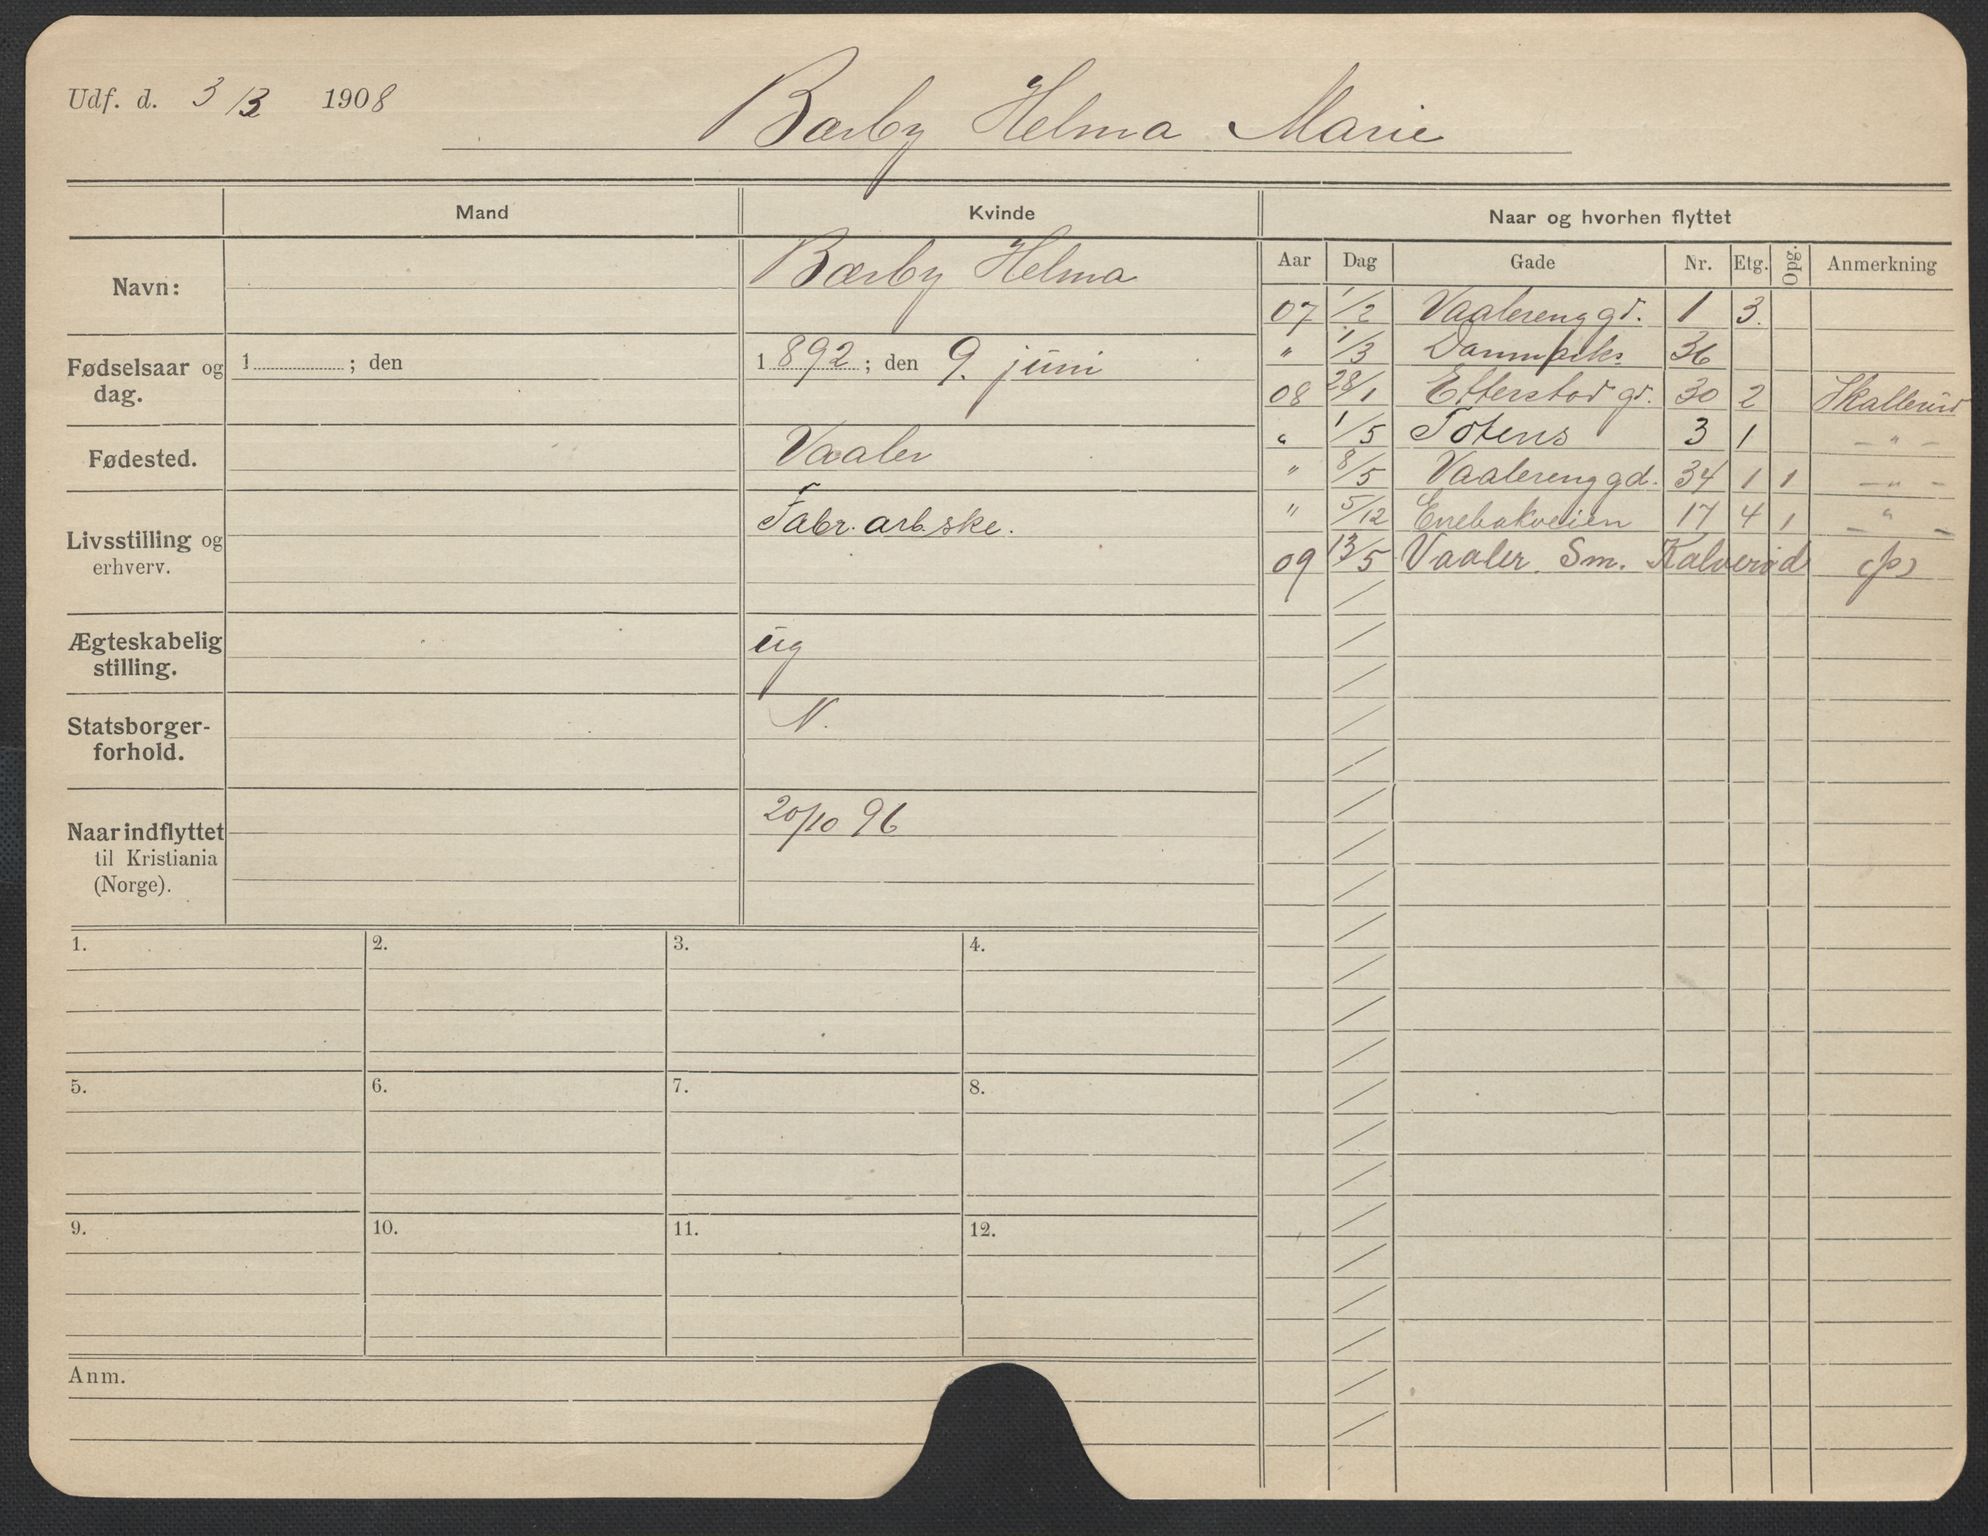 Udf. d. 3/12 1908
Bærby Helma Marie
Mand
Kvinde
Naar og hvorhen flyttet
Aar Dag Gade Nr. Etg. Opg. Anmerkning
Navn:
Bærby Helma
Fødselsaar og dag.
1 ; den
1892 ; den 9. juni
Fødested.
Vaaler
Livsstilling og erhverv.
Fabr. arb.ske.
Ægteskabelig stilling.
ug
Statsborger-forhold.
N.
Naar indflyttet til Kristiania (Norge).
20/10 96
07 1/2 Vaalereng gd. 1 3.
" 1/3 36
08 28/1 Etterstad gd. 30 2 Skallerud
" 1/5 Totens 3 1 - " -
" 8/5 Vaalereng gd. 34 1 1 - " -
" 5/12 Enebakveien 17 4 1 - " -
09 13/5 Vaaler Sm. Kalverød (p)
1. 2. 3. 4.
5. 6. 7. 8.
9. 10. 11. 12.
Anm.